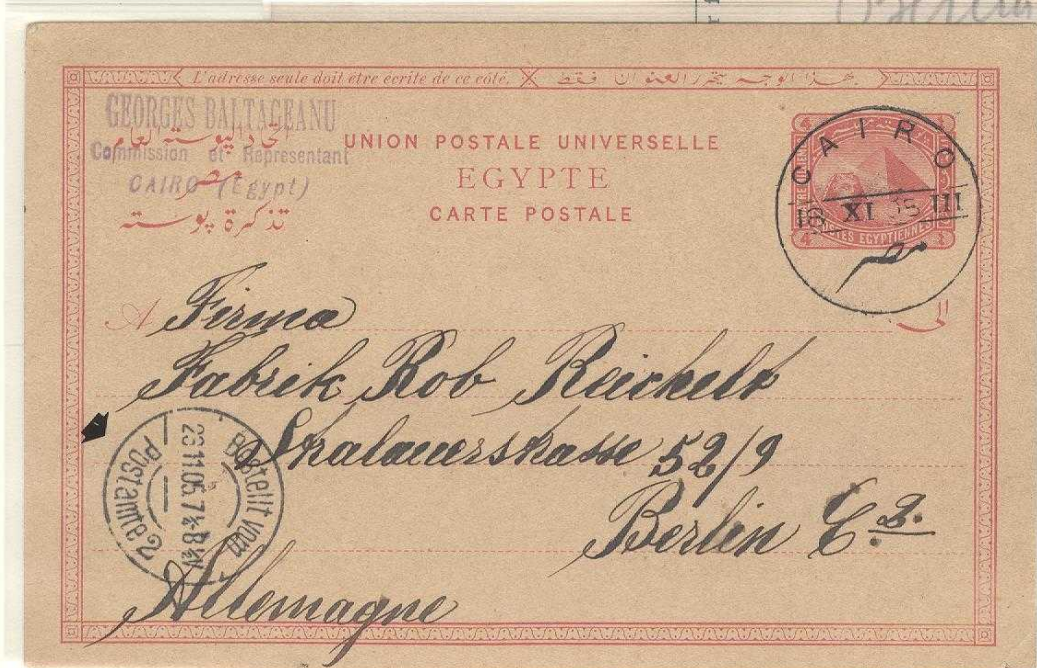 Berlin
L'adresse seule doit être écrite de ce côté.
بهذا الوجه يتحرر العنوان فقط
GEORGES BALTAGEANU
Commission et Représentant
CAIRO (Egypt)
مصر
تذكرة پوسته
UNION POSTALE UNIVERSELLE
EGYPTE
CARTE POSTALE
CAIRO
18 XI 05 III
مصر
4
POSTES EGYPTIENNES
4
A Firma
الى
Fabrik Rob Reichelt
Stralauerstrasse 52/9
Berlin C. 2.
Allemagne
Bestellt vom
Postamte 2
23.11.05. 7¼-8½V